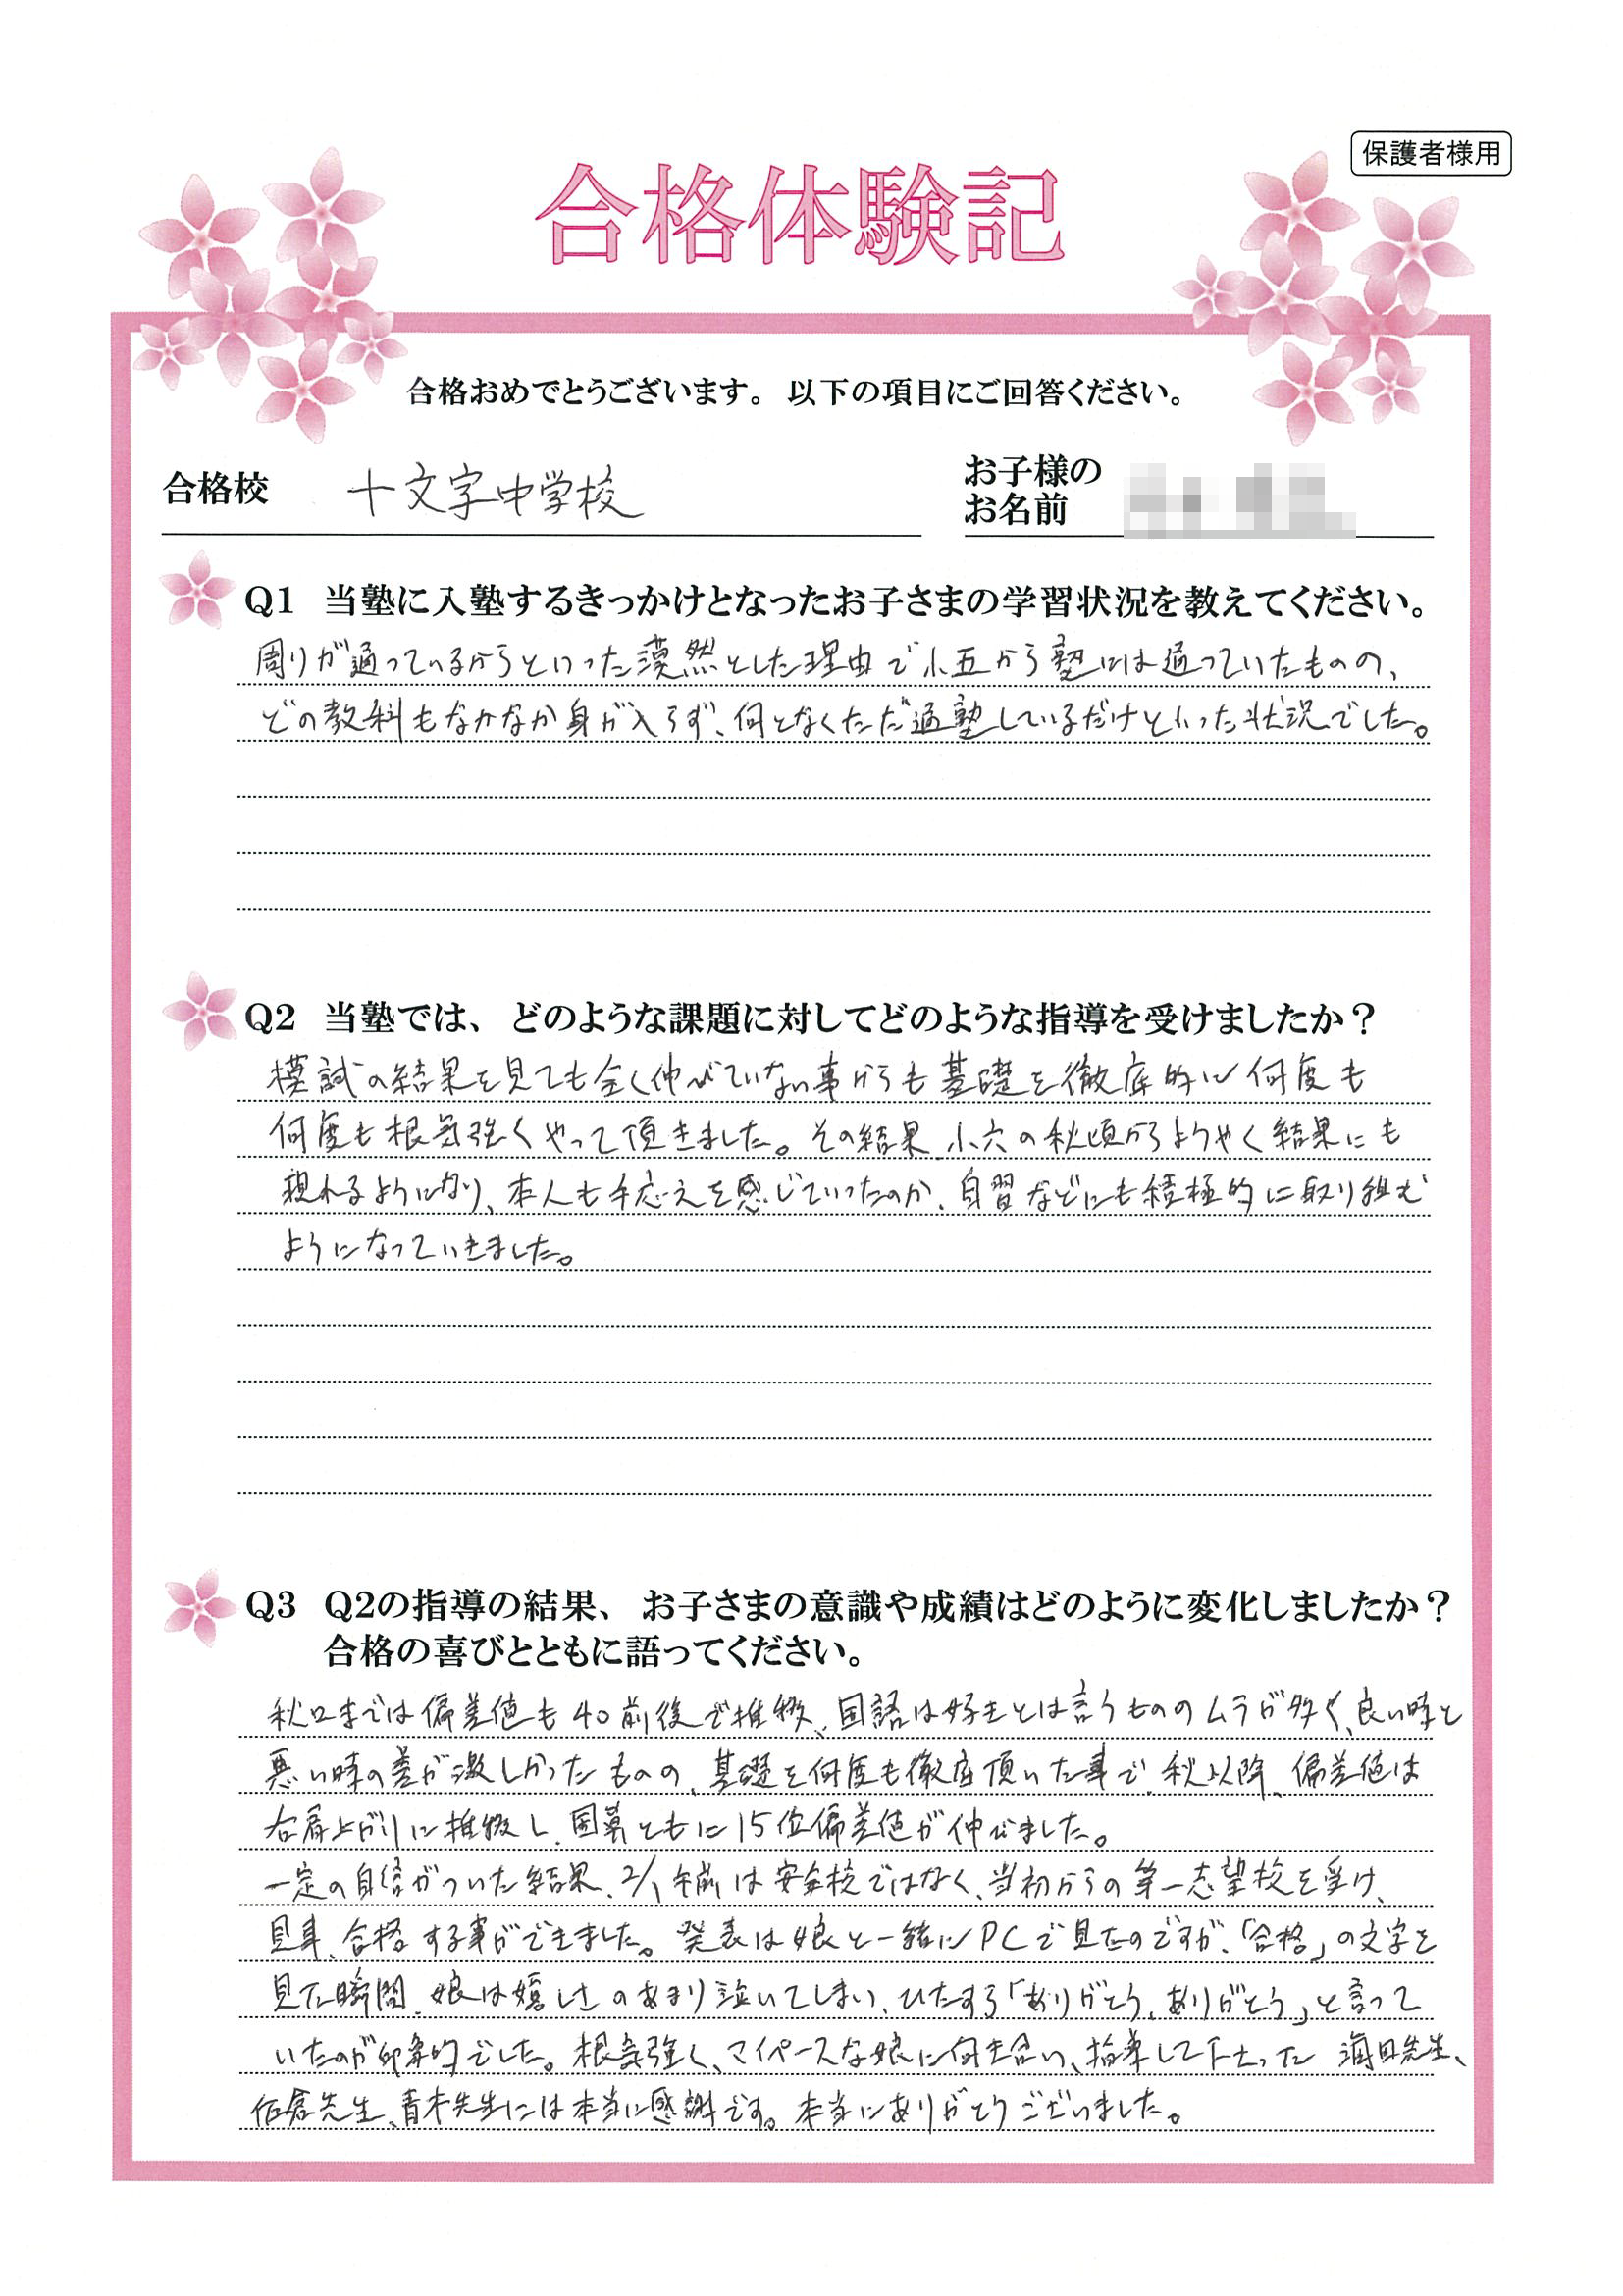 保護者様用
合格体験記
合格おめでとうございます。以下の項目にご回答ください。
合格校 十文字中学校
お子様の
お名前
Q1 当塾に入塾するきっかけとなったお子さまの学習状況を教えてください。
周りが通っているからといった漠然とした理由で小五から塾には通っていたものの、
どの教科もなかなか身が入らず、何となくただ通塾しているだけといった状況でした。
Q2 当塾では、どのような課題に対してどのような指導を受けましたか？
模試の結果を見ても全く伸びていない事からも基礎を徹底的に何度も
何度も根気強くやって頂きました。その結果、小六の秋頃からようやく結果にも
現れるようになり、本人も手応えを感じていったのか、自習などにも積極的に取り組む
ようになっていきました。
Q3 Q2の指導の結果、お子さまの意識や成績はどのように変化しましたか？
合格の喜びとともに語ってください。
秋口までは偏差値も40前後で推移、国語は好きとは言うもののムラが多く、良い時と
悪い時の差が激しかったものの、基礎を何度も徹底頂いた事で、秋以降、偏差値は
右肩上がりに推移し、国算ともに15位偏差値が伸びました。
一定の自信がついた結果、2/1午前は安全校ではなく、当初からの第一志望校を受け、
見事、合格する事ができました。発表は娘と一緒にPCで見たのですが、「合格」の文字を
見た瞬間、娘は嬉しさのあまり泣いてしまい、ひたすら「ありがとう、ありがとう」と言って
いたのが印象的でした。根気強く、マイペースな娘に向き合い、指導して下さった 先生、
佐倉先生、青木先生には本当に感謝です。本当にありがとうございました。